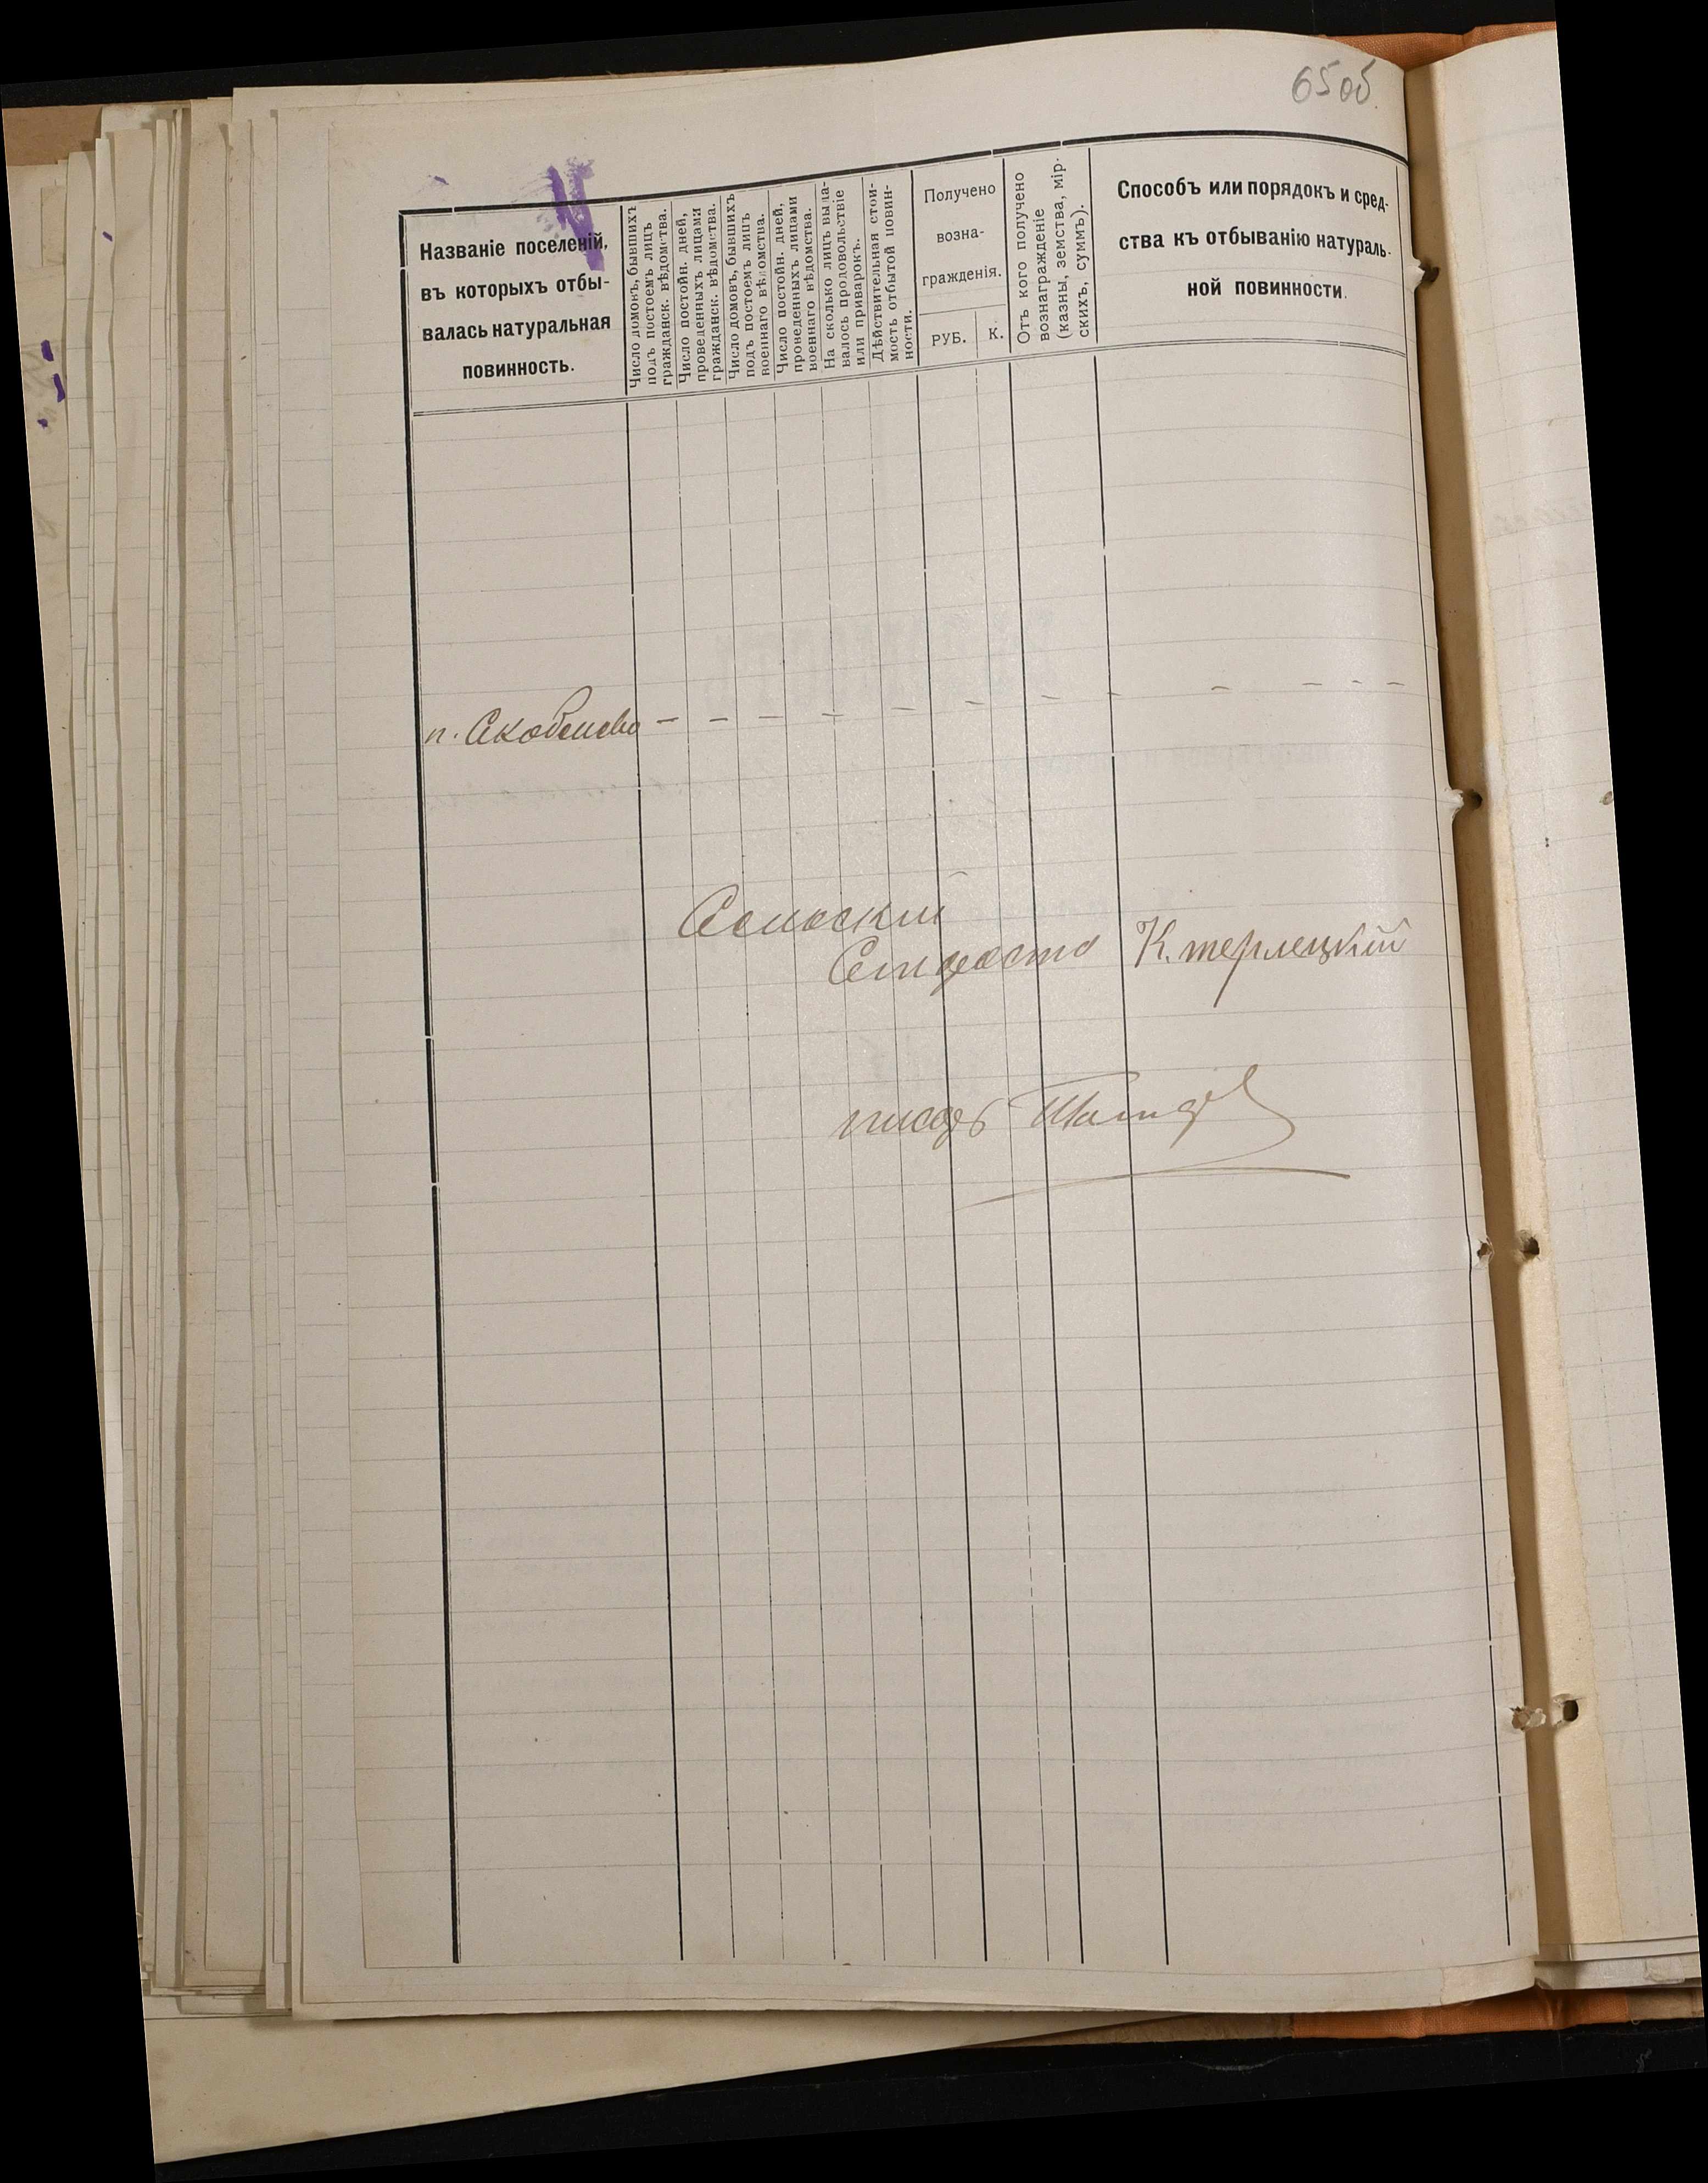 65 об.
Названіе поселеній,
въ которыхъ отбы-
валась натуральная
повинность.
Число домовъ, бывшихъ
подъ постоемъ лицъ
гражданск. вѣдомства.
Число постойн. дней,
проведенныхъ лицами
гражданск. вѣдомства.
Число домовъ, бывшихъ
подъ постоемъ лицъ
военнаго вѣдомства.
Число постойн. дней,
проведенныхъ лицами
военнаго вѣдомства.
На сколько лицъ выда-
валось продовольствіе
или приварокъ.
Дѣйствительная стои-
мость отбытой повин-
ности.
Получено
возна-
гражденія.
РУБ. К.
Отъ кого получено
вознагражденіе
(казны, земства, мір-
скихъ, суммъ).
Способъ или порядокъ и сред-
ства къ отбыванію натураль-
ной повинности.
п. Скобелево - - - - - - - - - - - -
Сельский
Староста К. терлецкий
писарь